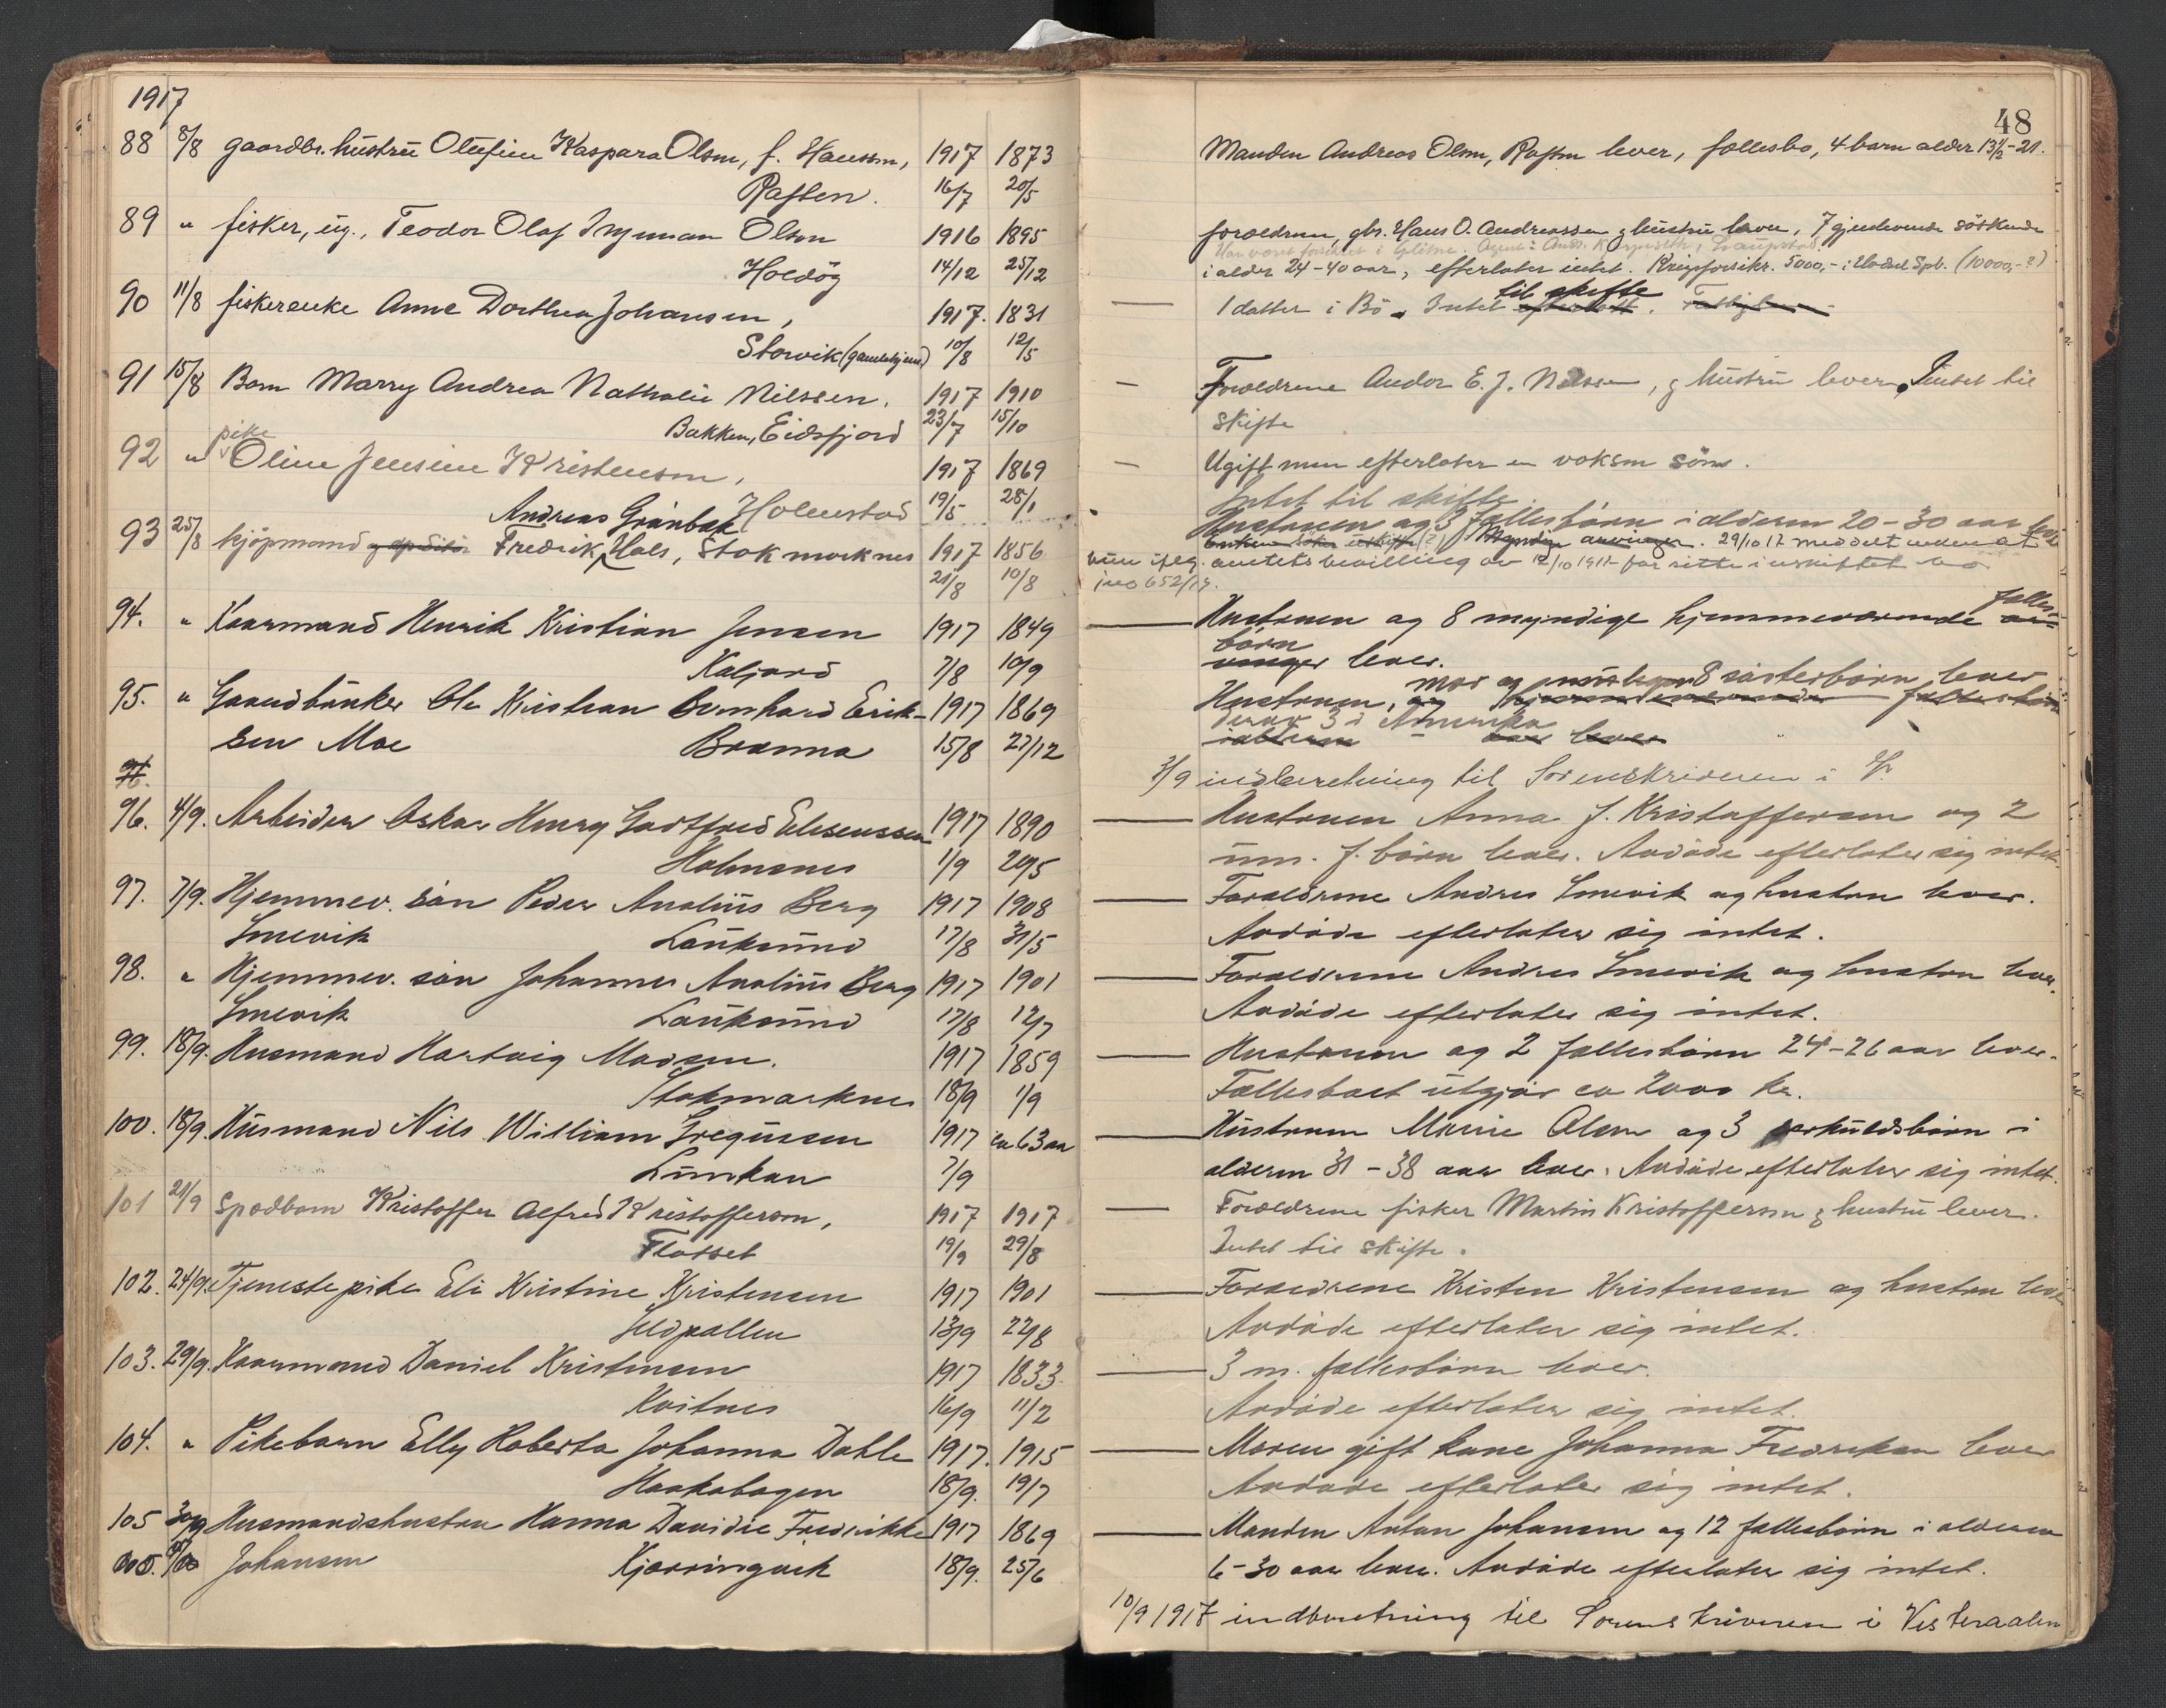 1917
88 8/8 gaardbr. hustru Olufine Kaspara Olsen, f. Hansen, 1917 1873
Raften. 16/7 20/5
89 " fisker, ug., Teodor Olaf Ingeman Olsen 1916 1895
Holdøy 14/12 25/12
90 11/8 fiskerenke Anne Dorthea Johansen, 1917. 1831
Storvik (gamlehjem) 10/8 12/5
91 15/8 Barn Marry Andrea Nathalie Nilssen. 1917 1910
Bakken, Eidsfjord 23/7 15/10
pike
92 " Oline Jensine Kristensen, 1917 1869
Holmstad 19/5 28/1
Andreas Grønbek
93 25/8 kjøpmand Fredrik Hals, Stokmarknes 1917 1856
21/8 10/8
94. " Kaarmand Henrik Kristian Jensen 1917 1849
Kaljord 7/8 10/9
95. " Gaardbruker Ole Kristian Bernhard Erik- 1917 1869
sen Moe Brenna 15/8 27/12
96. 4/9. Arbeider Oskar Henry Godtfred Edisenssen 1917 1890
Holmsnes 1/9 20/5
97. 7/9. Hjemmev. søn Peder Anolius Berg 1917 1908
Smevik Laukøsund 17/8 31/5
98. " Hjemmev. søn Johannes Anolius Berg 1917 1901
Smevik Laukøsund 17/8 12/7
99. 18/9. Husmand Hartvig Madsen. 1917 1859
Stokmarknes 18/9 1/9
100. 18/9. Husmand Nils William Gregussen 1917 ca 63 aar
Lunkan 7/9
101 21/9 Spædbarn Kristoffer Alfred Kristoffersen, 1917 1917
Flatset 19/9 29/8
102. 24/9. Tjenestepike Eli Kristine Kristensen 1917 1901
Seldpallen 13/9 22/8
103. 29/9. Kaarmand Daniel Kristensen 1917 1833
Kvitnes 16/9 11/2
104. " Pikebarn Elly Roberta Johanna Dahle 1917. 1915
Haakabogen 18/9. 19/7
105 30/9 Husmandshustru Hanna Davidie Fredrikke 1917 1869
Johansen Kjerringvik 18/9. 25/6
48
Manden Andreas Olsen, Raften lever, fællesbo, 4 barn alder 13½-21.
forældrene, gbr. Hans O. Andreassen & hustru lever, 7 gjenlevende søskende
i alder 24-40 aar, efterlater intet. Krigsforsikr. 5000,- i Hadsel Spb. (10000,-?)
til skifte
1 datter i Bø. Intet
Forældrene Andor E. J. Nilssen, & hustru lever. Intet til
skifte
Ugift men efterlater en voksen søn.
Intet til skifte.
Hustruen og 3 fællesbørn i alderen 20-30 aar lever
Enken søker uskifte (?) Myndige arvinger. 29/10 17 meddelt enken at
hun iflg. amtets bevilling av 12/10 1917 far sitte i uskiftet bo
jno 652/17.
Hustruen og 8 myndige hjemmeværende fælles-
børn lever.
Hustruen, mor og 8 søsterbørn lever
derav 3 i Amerika
3/9 indberetning til Sorenskriveren i V.
Hustruen Anna f. Kristoffersen og 2
um. f. børn lever. Avdøde efterlater sig intet.
Foreldrene Andres Smevik og hustru lever.
Avdøde efterlater sig intet.
Foreldrene Andres Smevik og hustru lever.
Avdøde efterlater sig intet.
Hustruen og 2 fællesbørn 24-26 aar lever.
Fællesboet utgjør ca 2000 kr.
Hustruen Marie Olsen og 3 særkuldsbørn i
alderen 31-38 aar lever. Avdøde efterlater sig intet.
Forældrene fisker Martin Kristoffersen & hustru lever.
Intet til skifte.
Foreldrene Kristen Kristensen og hustru lever
Avdøde efterlater sig intet.
3 m. fællesbørn lever.
Avdøde efterlater sig intet.
Moren gift kone Johanna Fredriksen lever
Avdøde efterlater sig intet.
Manden Anton Johansen og 12 fællesbørn i alderen
6-30 aar lever. Avdøde efterlater sig intet.
10/9 1917 indberetning til Sorenskriveren i Vesteraalen